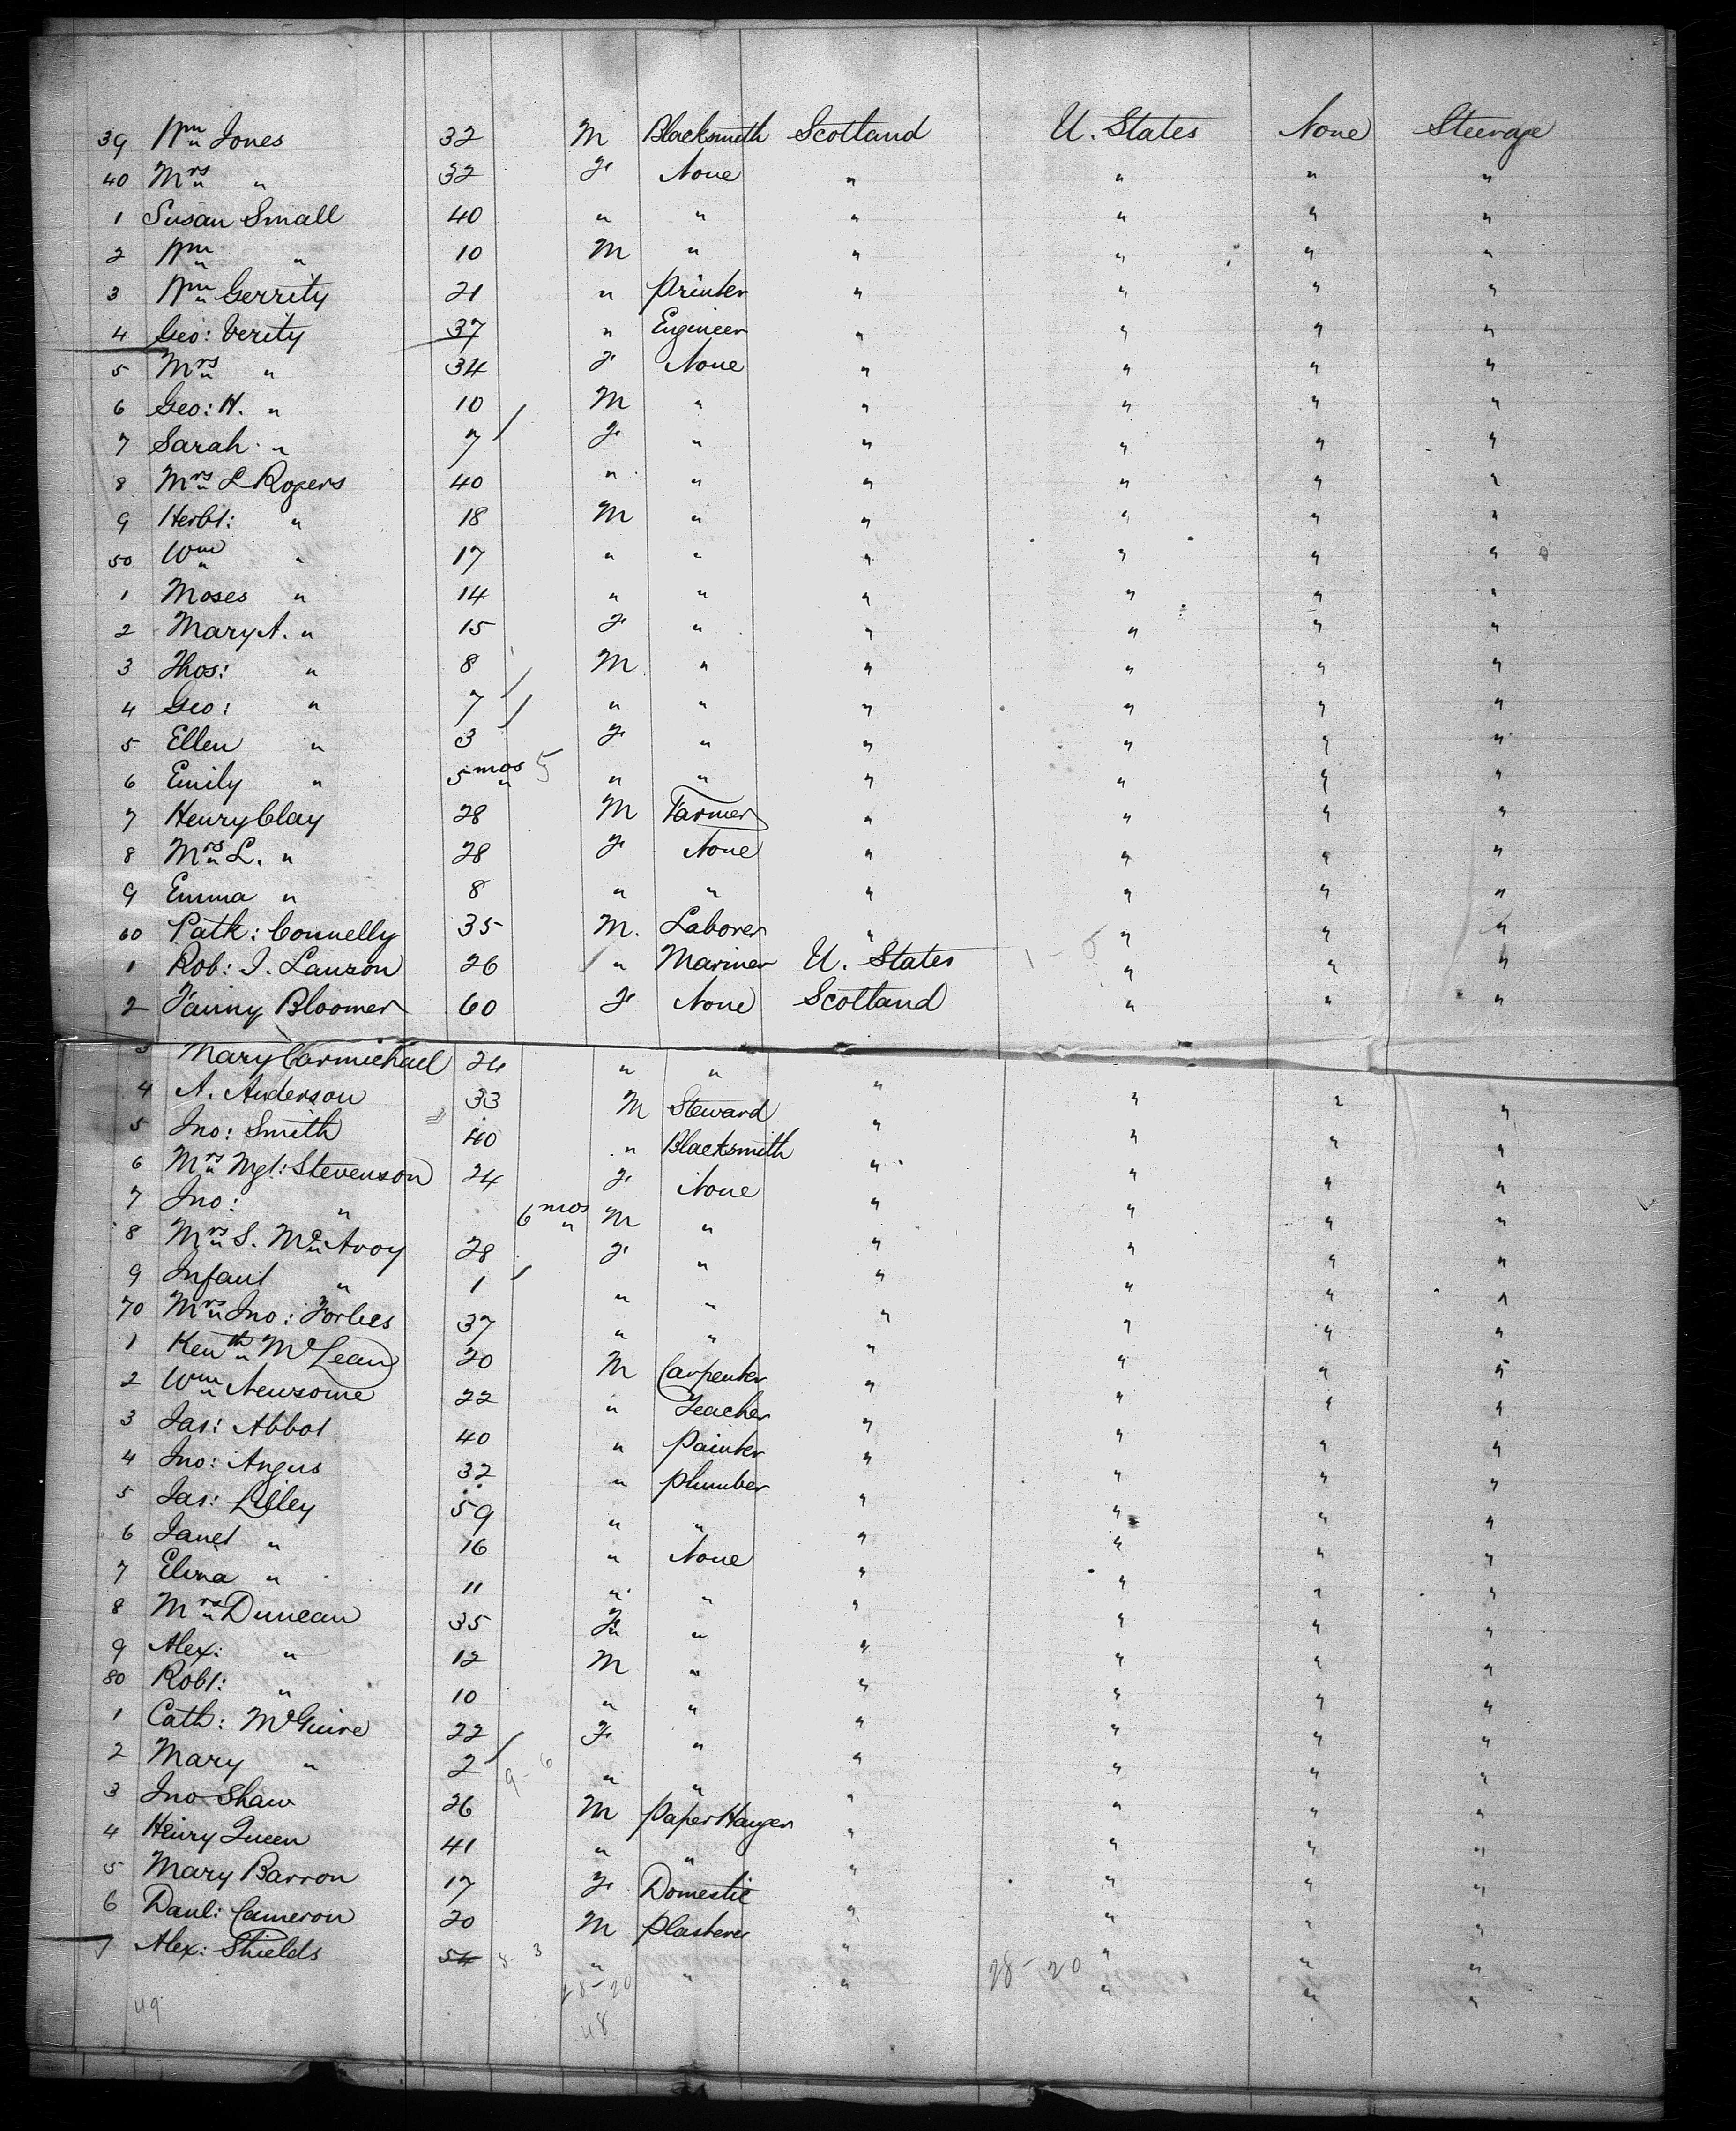 39 Wm Jones 32 M Blacksmith Scotland U. States None Steerage
40 Mrs " 32 F None " " " "
1 Susan Small 40 " " " " " "
2 Wm " 10 M " " " " "
3 Wm Gerrity 21 " Printer " " " "
4 Geo: Verity 37 " Engineer " " " "
5 Mrs " 34 F None " " " "
6 Geo: H. " 10 M " " " " "
7 Sarah " 7 F " " " " "
8 Mrs L Rogers 40 " " " " " "
9 Herbt: " 18 M " " " " "
50 Wm " 17 " " " " " "
1 Moses " 14 " " " " " "
2 Mary A. " 15 F " " " " "
3 Thos: " 8 M " " " " "
4 Geo: " 7 " " " " " "
5 Ellen " 3 F " " " " "
6 Emily " 5 mos 5 " " " " " "
7 Henry Clay 28 M Farmer " " " "
8 Mrs L. " 28 F None " " " "
9 Emma " 8 " " " " " "
60 Patk: Connelly 35 M. Laborer " " " "
1 Rob: J. Lauron 26 " Mariner U. States " " "
2 Fanny Bloomer 60 F None Scotland " " "
3 Mary Carmichael 24 " " " " " "
4 A. Anderson 33 M Steward " " " "
5 Jno: Smith 40 " Blacksmith " " " "
6 Mrs Mgt: Stevenson 24 F None " " " "
7 Jno: " 6 mos M " " " " "
8 Mrs S. McAvoy 28 F " " " " "
9 Infant " 1 " " " " " "
70 Mrs Jno: Forbes 37 " " " " " "
1 Kenth McLean 20 M Carpenter " " " "
2 Wm Newsome 22 " Teacher " " " "
3 Jas: Abbot 40 " Painter " " " "
4 Jno: Angus 32 " Plumber " " " "
5 Jas: Lilley 59 " " " " " "
6 Janet " 16 " None " " " "
7 Elina " 11 " " " " " "
8 Mrs Duncan 35 F " " " " "
9 Alex: " 12 M " " " " "
80 Robt: " 10 " " " " " "
1 Cath: McGuire 22 F " " " " "
2 Mary " 2 9-6 " " " " " "
3 Jno Shaw 26 M Paper Hanger " " " "
4 Henry Queen 41 " " " " " "
5 Mary Barron 17 F Domestic " " " "
6 Danl: Cameron 20 M Plasterer " " " "
7 Alex: Shields 54 8 3 " " " " " "
28-20 28-20
49 48